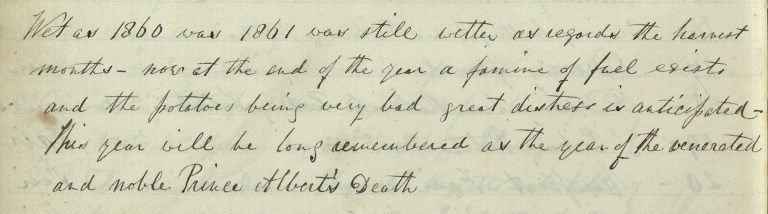 Wet as 1860 was 1861 was still wetter as regards the harvest
months - now at the end of the year a famine of fuel exists
and the potatoes being very bad great distress is anticipated -
This year will be long remembered as the year of the venerated
and noble Prince Albert's Death